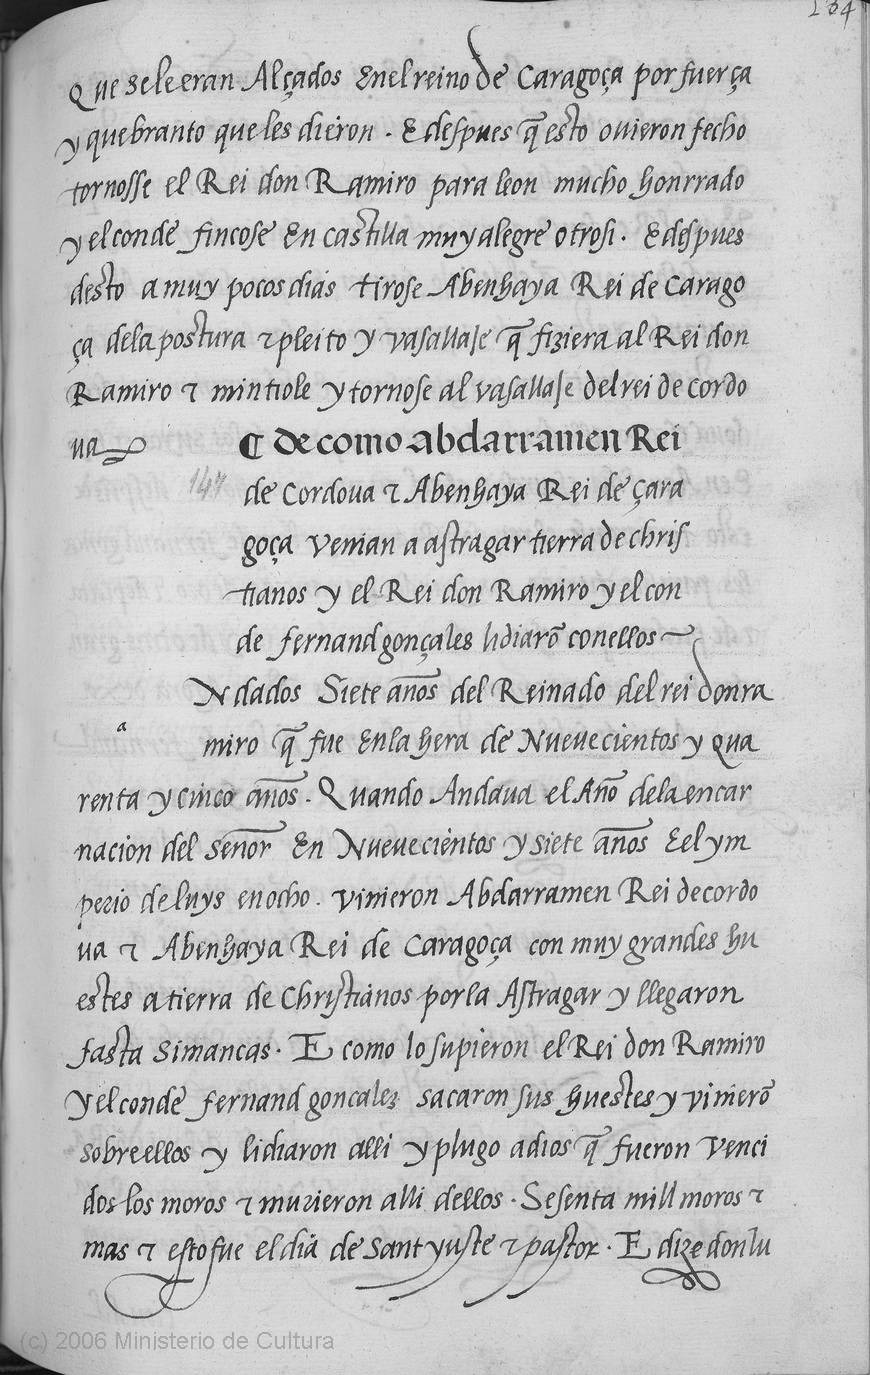 Que se le eran Alçados En el reino de Caragoça por fuerça
y quebranto que les dieron . E despues q̃ esto ouieron fecho
tornosse el Rei don Ramiro para leon mucho honrrado
y el conde fincose En castilla muy alegre otrosi . E despues
desto a muy pocos dias tirose Abenhaya Rei de Carago
ça dela postura ⁊ pleito y vasallaje q̃ fiziera al Rei don
Ramiro ⁊ mintiole y tornose al vasallaje del rei de cordo
ua
¶ de como abdarramen Rei
147 de Cordoua ⁊ Abenhaya Rei de çara
goça venian a astragar tierra de chris
tianos y el Rei don Ramiro y el con
de fernand gonçales lidiarõ con ellos
Ndados Siete años del Reinado del rei don ra
a miro q̃ fue En la hera de Nueuecientos y qua
renta y cinco años . Quando Andaua el Año dela encar
nacion del señor En Nueuecientos y siete años E el ym
perio de luys en ocho . vinieron Abdarramen Rei de cordo
ua ⁊ Abenhaya Rei de Caragoça con muy grandes hu
estes a tierra de Christianos por la Astragar y llegaron
fasta Simancas . E como lo supieron el Rei don Ramiro
y el conde fernand goncalez sacaron sus huestes y vinierõ
sobre ellos y lidiaron alli y plugo a dios q̃ fueron venci
dos los moros ⁊ murieron alli dellos . Sesenta mill moros ⁊
mas ⁊ esto fue el dia de Sant yuste ⁊ pastor . E dize don lu
(c) 2006 Ministerio de Cultura